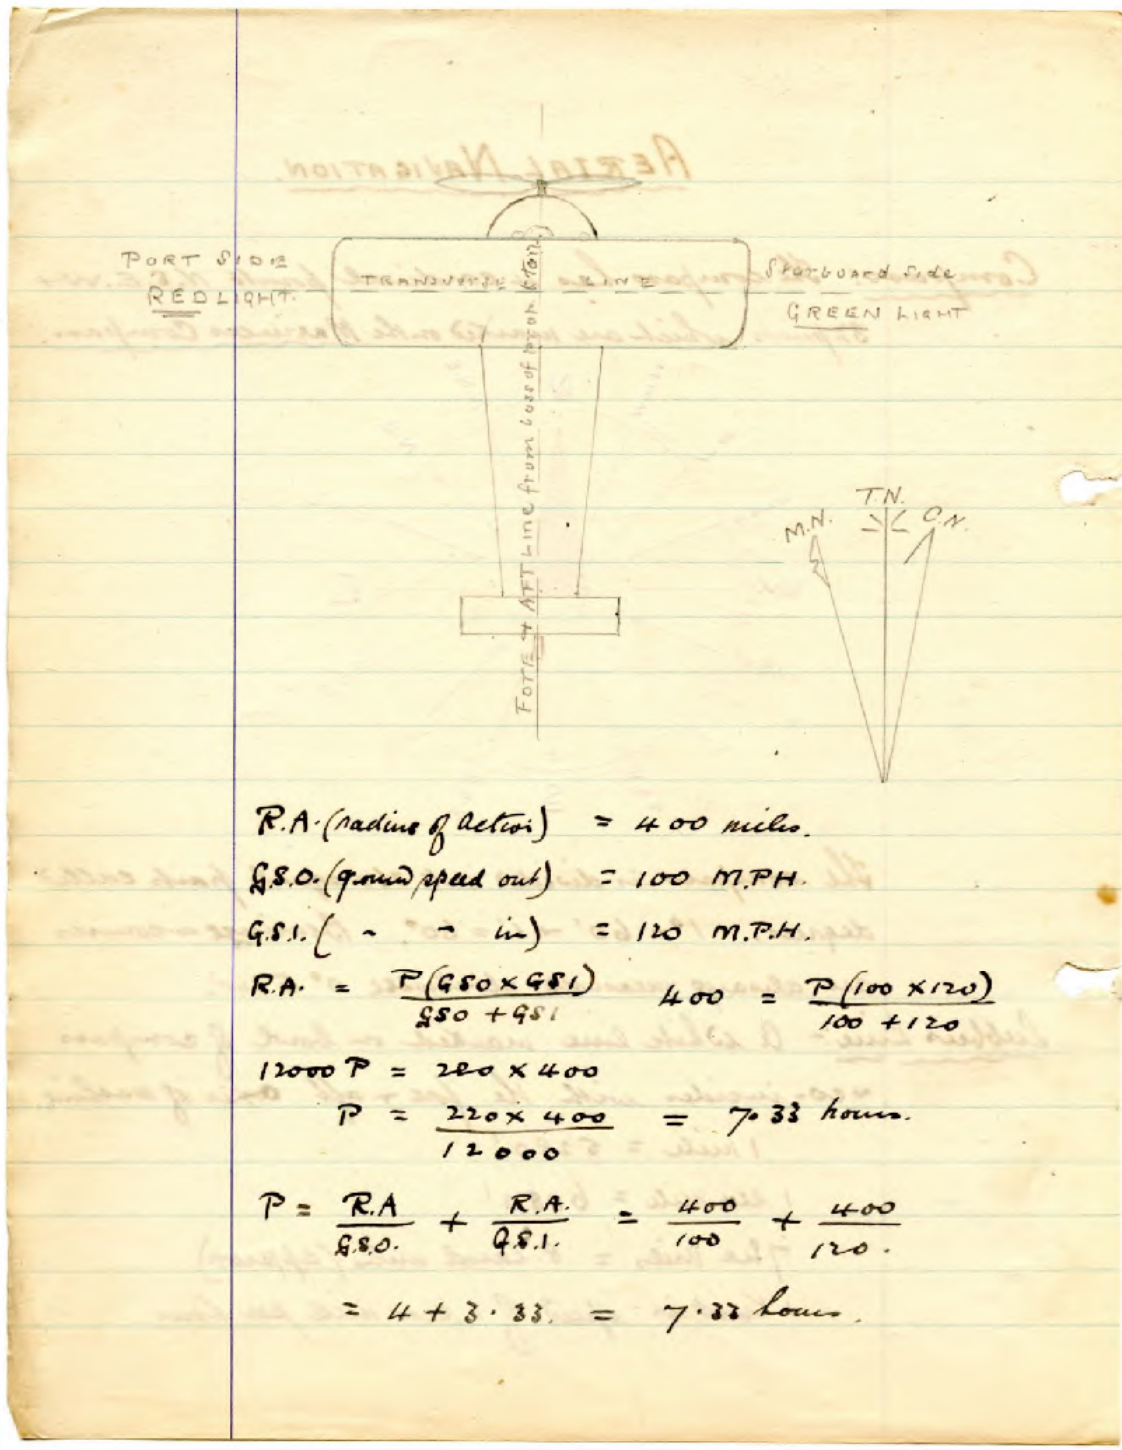 PORT SIDE
RED LIGHT.
TRANSVERSE LINE
Starboard Side
GREEN LIGHT
FORE & AFT Line from boss of prop to tail.
M.N.
T.N.
C.N.
R.A. (radius of action) = 400 miles.
G.S.O. (ground speed out) = 100 M.P.H.
G.S.I. ( " " in) = 120 M.P.H.
R.A. = P(GSO x GSI) / GSO + GSI 400 = P(100 x 120) / 100 + 120
12000 P = 220 x 400
P = 220 x 400 / 12000 = 7.33 hours.
P = R.A / G.S.O. + R.A. / G.S.I. = 400 / 100 + 400 / 120.
= 4 + 3.33. = 7.33 hours.